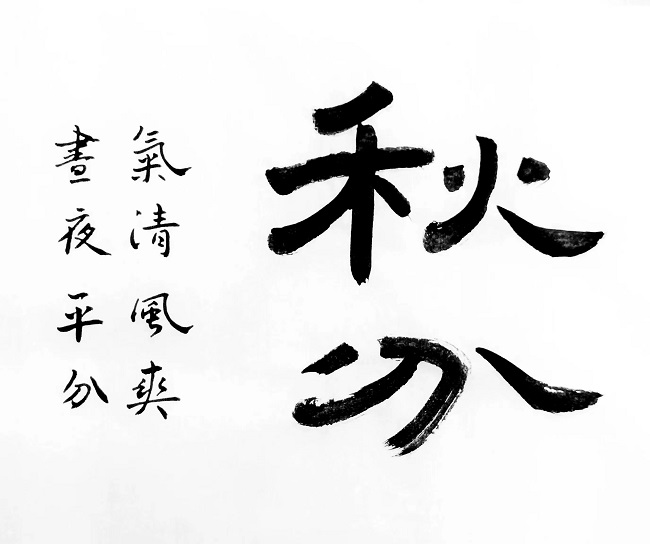 秋分
氣清風爽
晝夜平分